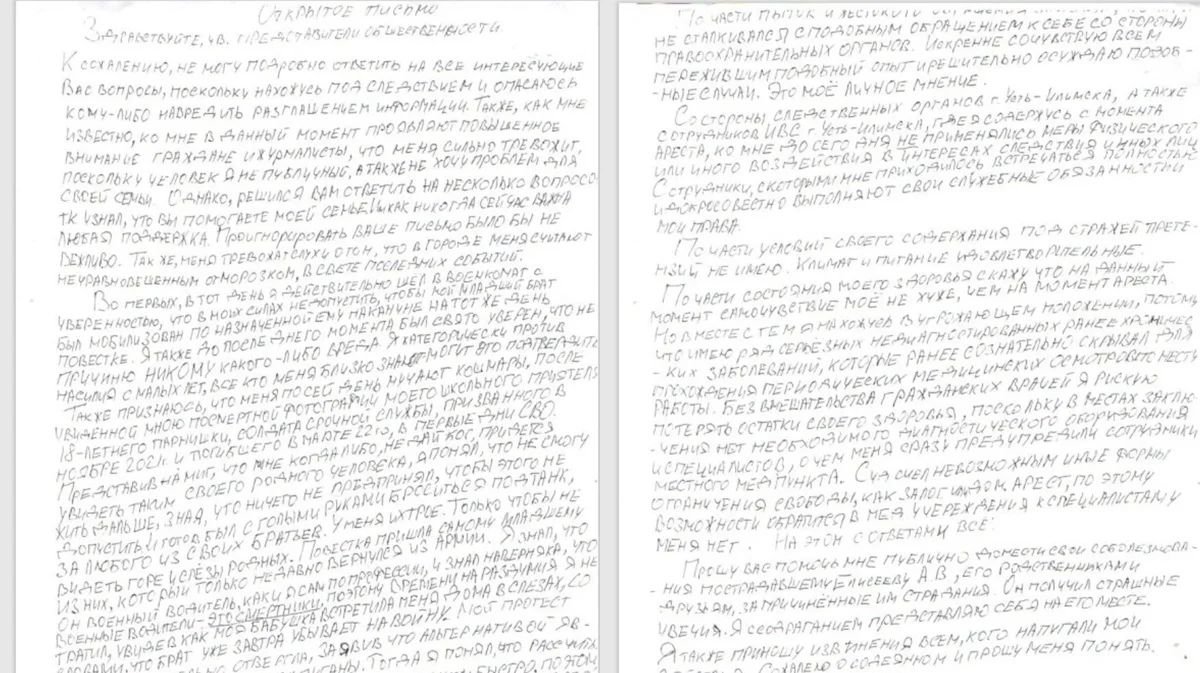 ОТКРЫТОЕ ПИСЬМО
ЗДРАВСТВУЙТЕ, УВ. ПРЕДСТАВИТЕЛИ ОБЩЕСТВЕННОСТИ.
К СОЖАЛЕНИЮ, НЕ МОГУ ПОДРОБНО ОТВЕТИТЬ НА ВСЕ ИНТЕРЕСУЮЩИЕ
ВАС ВОПРОСЫ, ПОСКОЛЬКУ НАХОЖУСЬ ПОД СЛЕДСТВИЕМ И ОПАСАЮСЬ
КОМУ-ЛИБО НАВРЕДИТЬ РАЗГЛАШЕНИЕМ ИНФОРМАЦИИ. ТАКЖЕ, КАК МНЕ
ИЗВЕСТНО, КО МНЕ В ДАННЫЙ МОМЕНТ ПРОЯВЛЯЮТ ПОВЫШЕННОЕ
ВНИМАНИЕ ГРАЖДАНЕ И ЖУРНАЛИСТЫ, ЧТО МЕНЯ СИЛЬНО ТРЕВОЖИТ,
ПОСКОЛЬКУ ЧЕЛОВЕК Я НЕ ПУБЛИЧНЫЙ, А ТАКЖЕ НЕ ХОЧУ ПРОБЛЕМ ДЛЯ
СВОЕЙ СЕМЬИ. ОДНАКО, РЕШИЛСЯ ВАМ ОТВЕТИТЬ НА НЕСКОЛЬКО ВОПРОСО
ТК УЗНАЛ, ЧТО ВЫ ПОМОГАЕТЕ МОЕЙ СЕМЬЕ. И КАК НИКОГДА СЕЙЧАС ВАЖНА
ЛЮБАЯ ПОДДЕРЖКА. ПРОИГНОРИРОВАТЬ ВАШЕ ПИСЬМО БЫЛО БЫ НЕ
ВЕЖЛИВО. ТАК ЖЕ, МЕНЯ ТРЕВОЖАТ СЛУХИ О ТОМ, ЧТО В ГОРОДЕ МЕНЯ СЧИТАЮТ
НЕУРАВНОВЕШЕННЫМ ОТМОРОЗКОМ, В СВЕТЕ ПОСЛЕДНИХ СОБЫТИЙ.
ВО ПЕРВЫХ, В ТОТ ДЕНЬ Я ДЕЙСТВИТЕЛЬНО ШЕЛ В ВОЕНКОМАТ С
УВЕРЕННОСТЬЮ, ЧТО В МОИХ СИЛАХ НЕ ДОПУСТИТЬ, ЧТОБЫ МОЙ МЛАДШИЙ БРАТ
БЫЛ МОБИЛИЗОВАН ПО НАЗНАЧЕННОЙ ЕМУ НАКАНУНЕ НА ТОТ ЖЕ ДЕНЬ
ПОВЕСТКЕ. Я ТАКЖЕ ДО ПОСЛЕДНЕГО МОМЕНТА БЫЛ СВЯТО УВЕРЕН, ЧТО НЕ
ПРИЧИНЮ НИКОМУ КАКОГО-ЛИБО ВРЕДА. Я КАТЕГОРИЧЕСКИ ПРОТИВ
НАСИЛИЯ С МАЛЫХ ЛЕТ, ВСЕ КТО МЕНЯ БЛИЗКО ЗНАЮТ МОГУТ ЭТО ПОДТВЕРДИТЬ
ТАКЖЕ ПРИЗНАЮСЬ, ЧТО МЕНЯ ПО СЕЙ ДЕНЬ МУЧАЮТ КОШМАРЫ, ПОСЛЕ
УВИДЕННОЙ МНОЮ ПОСМЕРТНОЙ ФОТОГРАФИИ МОЕГО ШКОЛЬНОГО ПРИЯТЕЛЯ
18-ЛЕТНЕГО ПАРНИШКИ, СОЛДАТА СРОЧНОЙ СЛУЖБЫ, ПРИЗВАННОГО В
НОЯБРЕ 2021г. И ПОГИБШЕГО В МАРТЕ 22го, В ПЕРВЫЕ ДНИ СВО.
ПРЕДСТАВИВ НА МИГ, ЧТО МНЕ КОГДА ЛИБО, НЕ ДАЙ БОГ, ПРИДЕТСЯ
УВИДЕТЬ ТАКИМ СВОЕГО РОДНОГО ЧЕЛОВЕКА, Я ПОНЯЛ, ЧТО НЕ СМОГУ
ЖИТЬ ДАЛЬШЕ, ЗНАЯ, ЧТО НИЧЕГО НЕ ПРЕДПРИНЯЛ, ЧТОБЫ ЭТОГО НЕ
ДОПУСТИТЬ. И ГОТОВ БЫЛ С ГОЛЫМИ РУКАМИ БРОСИТЬСЯ ПОД ТАНК,
ЗА ЛЮБОГО ИЗ СВОИХ БРАТЬЕВ. У МЕНЯ ИХ ТРОЕ. ТОЛЬКО ЧТОБЫ НЕ
ВИДЕТЬ ГОРЕ И СЛЁЗЫ РОДНЫХ. ПОВЕСТКА ПРИШЛА САМОМУ МЛАДШЕМУ
ИЗ НИХ, КОТОРЫЙ ТОЛЬКО НЕДАВНО ВЕРНУЛСЯ ИЗ АРМИИ. Я ЗНАЛ, ЧТО
ОН ВОЕННЫЙ ВОДИТЕЛЬ, КАК И Я САМ ПО ПРОФЕССИИ, И ЗНАЛ НАВЕРНЯКА, ЧТО
ВОЕННЫЕ ВОДИТЕЛИ- ЭТО СМЕРТНИКИ, ПОЭТОМУ ВРЕМЕНИ НА РАЗДУМИЯ Я НЕ
ТРАТИЛ, УВИДЕВ КАК МОЯ БАБУШКА ВСТРЕТИЛА МЕНЯ ДОМА В СЛЕЗАХ, СО
СЛОВАМИ, ЧТО БРАТ УЖЕ ЗАВТРА УБЫВАЕТ НА ВОЙНУ. МОЙ ПРОТЕСТ
ОТВЕРГЛА, ЗАЯВИВ ЧТО АЛЬТЕРНАТИВОЙ ЯВ-
ТОГДА Я ПОНЯЛ, ЧТО РАССЧИТЫ
БЫСТРО, ПОЭТОМ
ПО ЧАСТИ ПЫТОК И ЖЕСТОКОГО ОБРАЩЕНИЯ
НЕ СТАЛКИВАЛСЯ С ПОДОБНЫМ ОБРАЩЕНИЕМ К СЕБЕ СО СТОРОНЫ
ПРАВООХРАНИТЕЛЬНЫХ ОРГАНОВ. ИСКРЕННЕ СОЧУВСТВУЮ ВСЕМ
ПЕРЕЖИВШИМ ПОДОБНЫЙ ОПЫТ И РЕШИТЕЛЬНО ОСУЖДАЮ ПОДОБ-
-НЫЕ СЛУЧАИ. ЭТО МОЁ ЛИЧНОЕ МНЕНИЕ.
СО СТОРОНЫ СЛЕДСТВЕННЫХ ОРГАНОВ г. УСТЬ-ИЛИМСКА, А ТАКЖЕ
СОТРУДНИКОВ ИВС г. УСТЬ-ИЛИМСКА, ГДЕ Я СОДЕРЖУСЬ С МОМЕНТА
АРЕСТА, КО МНЕ ДО СЕГО ДНЯ НЕ ПРИМЕНЯЛИСЬ МЕРЫ ФИЗИЧЕСКОГО
ИЛИ ИНОГО ВОЗДЕЙСТВИЯ В ИНТЕРЕСАХ СЛЕДСТВИЯ И ИНЫХ ЛИЦ
СОТРУДНИКИ, С КОТОРЫМИ МНЕ ПРИХОДИЛОСЬ ВСТРЕЧАТЬСЯ ПОЛНОСТЬЮ
И ДОБРОСОВЕСТНО ВЫПОЛНЯЮТ СВОИ СЛУЖЕБНЫЕ ОБЯЗАННОСТИ И
МОИ ПРАВА.
ПО ЧАСТИ УСЛОВИЙ СВОЕГО СОДЕРЖАНИЯ ПОД СТРАЖЕЙ ПРЕТЕ-
НЗИЙ НЕ ИМЕЮ. КЛИМАТ И ПИТАНИЕ УДОВЛЕТВОРИТЕЛЬНЫЕ.
ПО ЧАСТИ СОСТОЯНИЯ МОЕГО ЗДОРОВЬЯ СКАЖУ ЧТО НА ДАННЫЙ
МОМЕНТ САМОЧУВСТВИЕ МОЁ НЕ ХУЖЕ, ЧЕМ НА МОМЕНТ АРЕСТА.
НО ВМЕСТЕ С ТЕМ Я НАХОЖУСЬ В УГРОЖАЮЩЕМ ПОЛОЖЕНИИ, ПОТОМУ
ЧТО ИМЕЮ РЯД СЕРЬЁЗНЫХ НЕДИАГНОСТИРОВАННЫХ РАНЕЕ ХРОНИЧЕС
- КИХ ЗАБОЛЕВАНИЙ, КОТОРЫЕ РАНЕЕ СОЗНАТЕЛЬНО СКРЫВАЛ ДЛЯ
ПРОХОЖДЕНИЯ ПЕРИОДИЧЕСКИХ МЕДИЦИНСКИХ ОСМОТРОВ ПО МЕСТУ
РАБОТЫ. БЕЗ ВМЕШАТЕЛЬСТВА ГРАЖДАНСКИХ ВРАЧЕЙ Я РИСКУЮ
ПОТЕРЯТЬ ОСТАТКИ СВОЕГО ЗДОРОВЬЯ, ПОСКОЛЬКУ В МЕСТАХ ЗАКЛЮ-
-ЧЕНИЯ НЕТ НЕОБХОДИМОГО ДИАГНОСТИЧЕСКОГО ОБОРУДОВАНИЯ
И СПЕЦИАЛИСТОВ, О ЧЕМ МЕНЯ СРАЗУ ПРЕДУПРЕДИЛИ СОТРУДНИКИ
МЕСТНОГО МЕДПУНКТА. СУД СЧЕЛ НЕВОЗМОЖНЫМ ИНЫЕ ФОРМЫ
ОГРАНИЧЕНИЯ СВОБОДЫ, КАК ЗАЛОГ ИЛИ ДОМ. АРЕСТ, ПО ЭТОМУ
ВОЗМОЖНОСТИ ОБРАТИТСЯ В МЕД УЧЕРЕЖДЕНИЯ К СПЕЦИАЛИСТАМ У
МЕНЯ НЕТ. НА ЭТОМ С ОТВЕТАМИ ВСЕ.
ПРОШУ ВАС ПОМОЧЬ МНЕ ПУБЛИЧНО ДОНЕСТИ СВОИ СОБОЛЕЗНОВА-
- НИЯ ПОСТРАДАВШЕМУ ЕЛИСЕЕВУ А В, ЕГО РОДСТВЕННИКАМ И
ДРУЗЬЯМ, ЗА ПРИЧИНЁННЫЕ ИМ СТРАДАНИЯ. ОН ПОЛУЧИЛ СТРАШНЫЕ
УВЕЧИЯ. Я С СОДРАГАНИЕМ ПРЕДСТАВЛЯЮ СЕБЯ НА ЕГО МЕСТЕ.
Я ТАКЖЕ ПРИНОШУ ИЗВИНЕНИЯ ВСЕМ, КОГО НАПУГАЛИ МОИ
СОЖАЛЕЮ О СОДЕЯННОМ И ПРОШУ МЕНЯ ПОНЯТЬ.